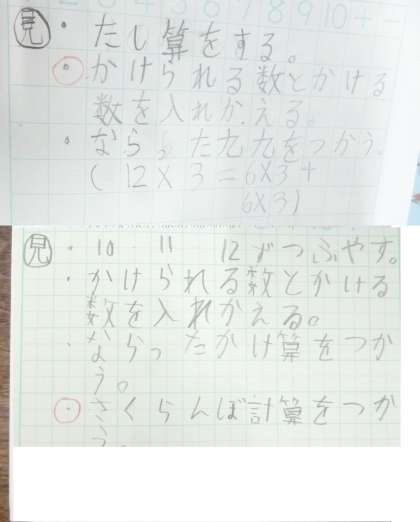 見 ・たし算をする。
・かけられる数とかける
数を入れかえる。
・ならった九九をつかう。
(12×3=6×3+
6×3)
見 ・10 11 12ずつふやす。
・かけられる数とかける
数を入れかえる。
・ならったかけ算をつか
う。
・さくらんぼ計算をつか
う。